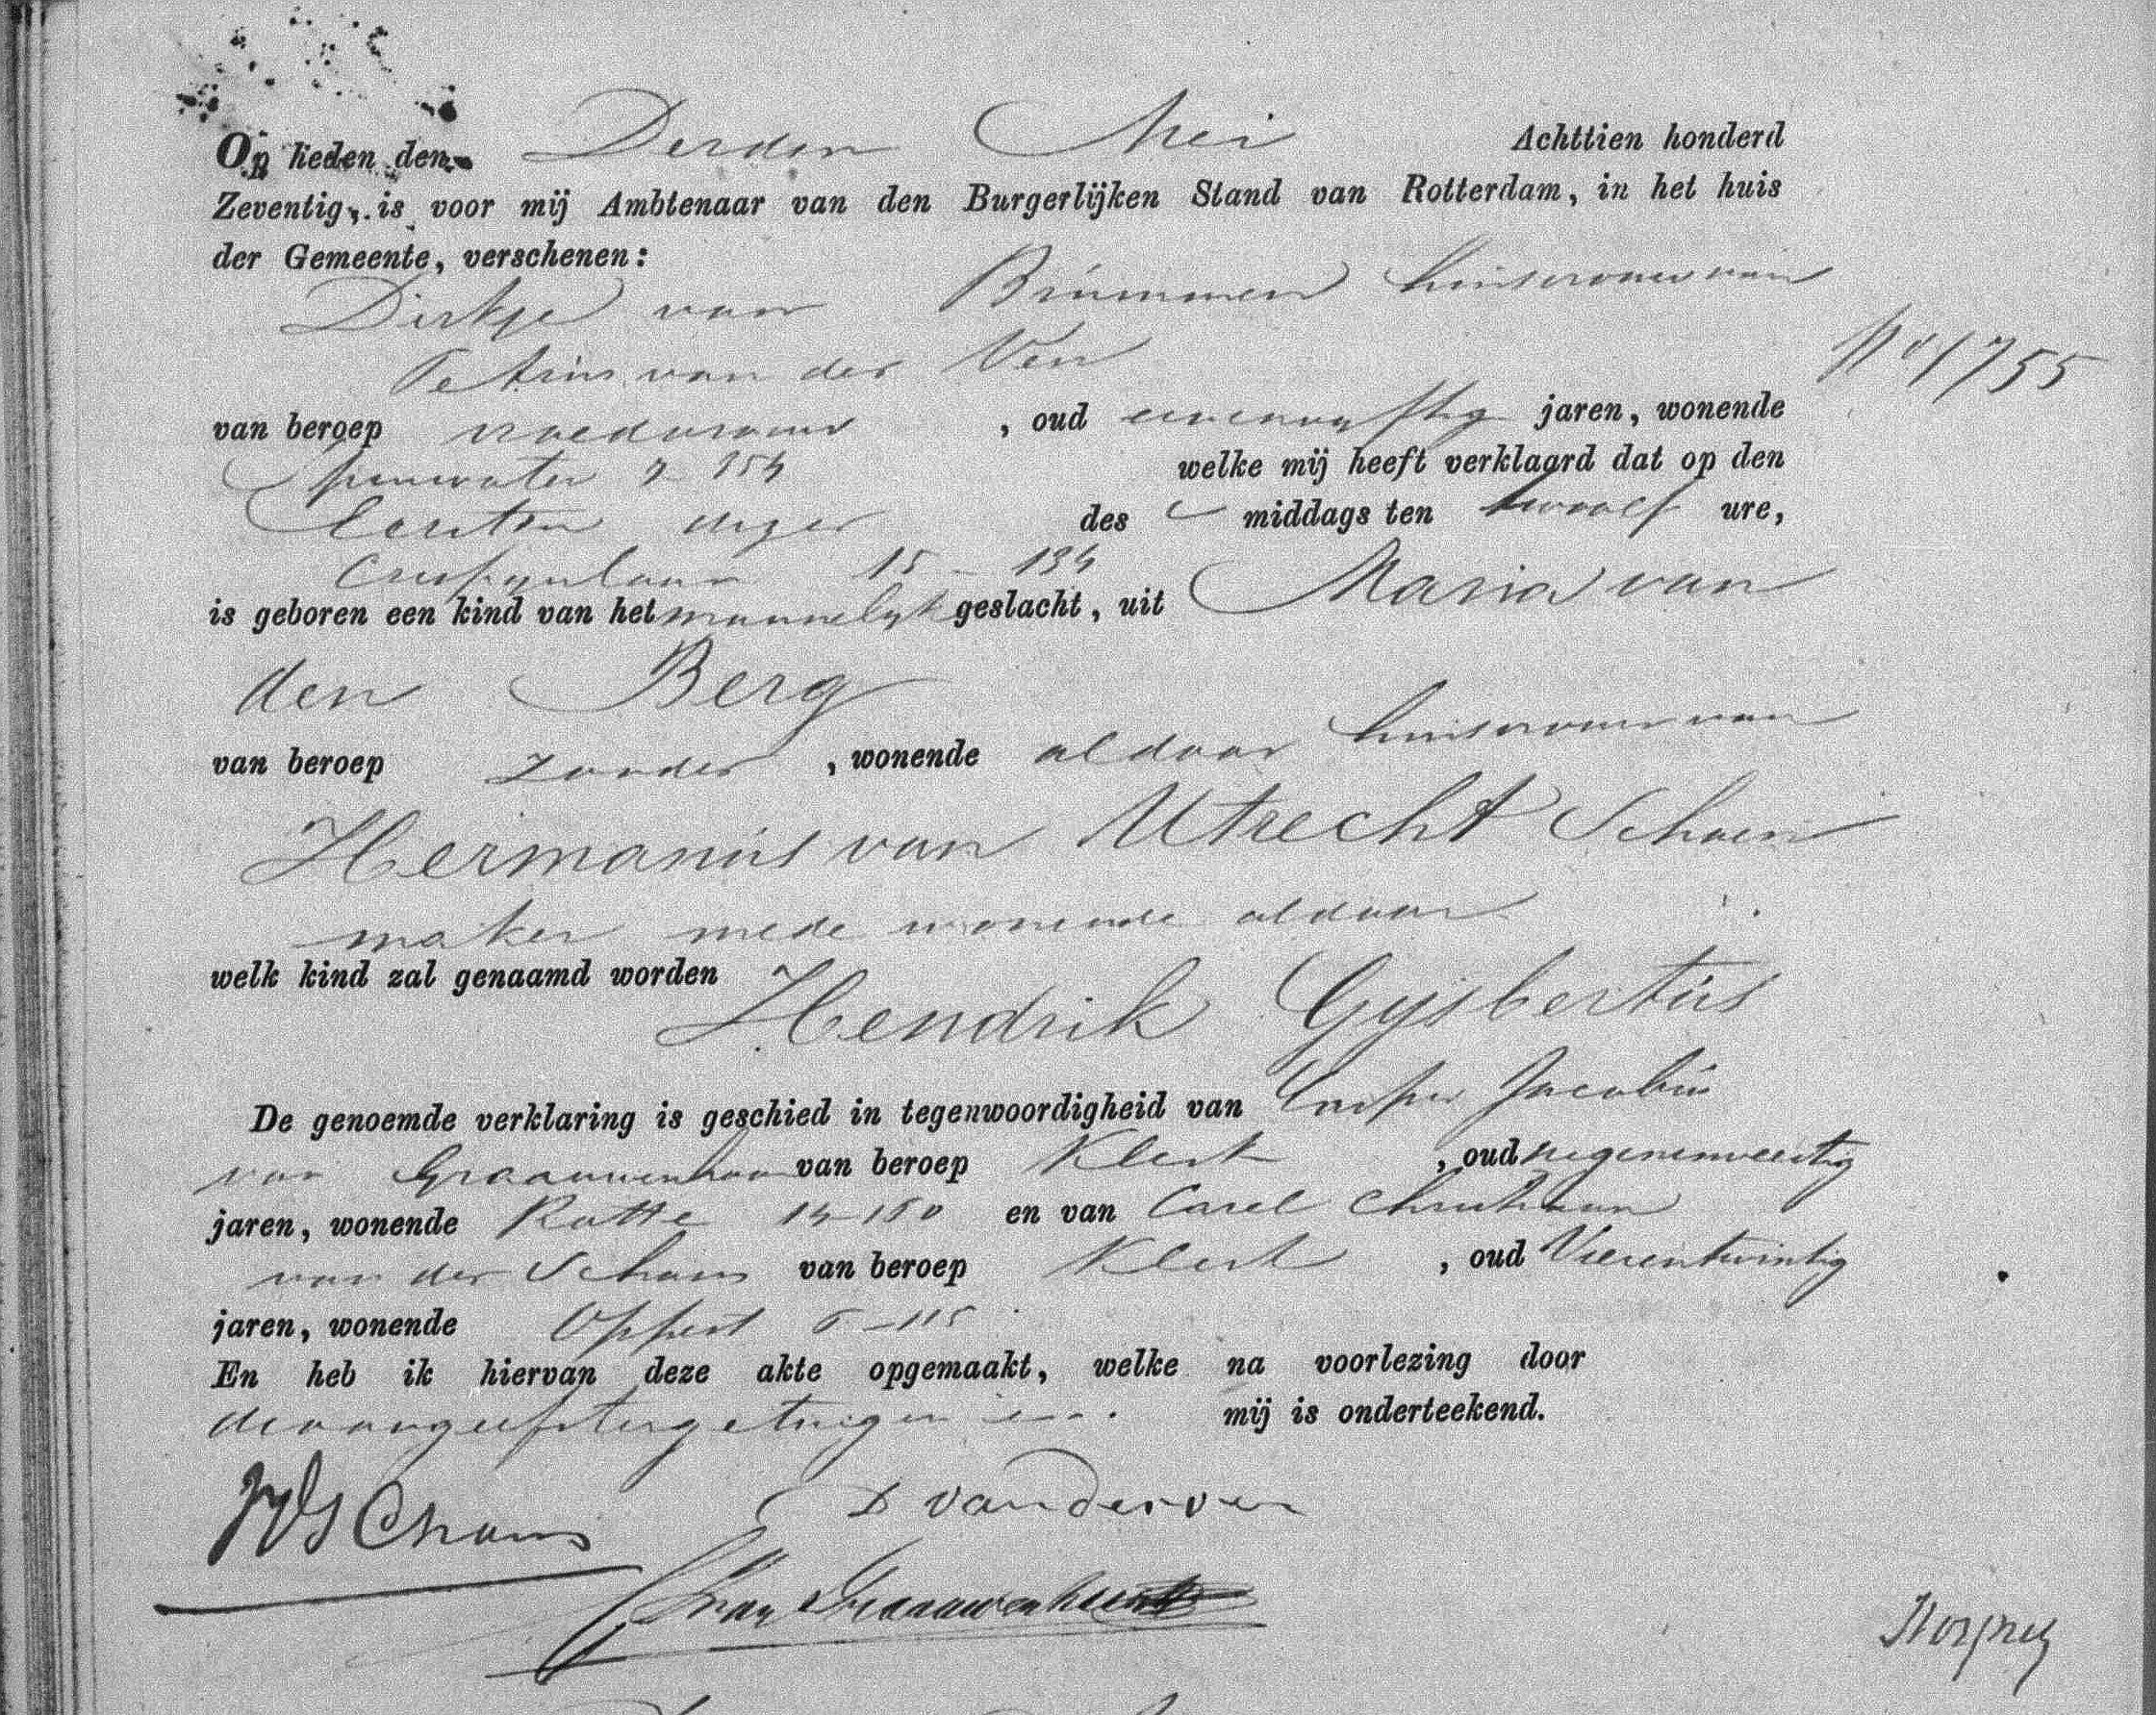 Op heden den Derden Mei Achttien honderd
Zeventig, is voor mij Ambtenaar van den Burgerlijken Stand van Rotterdam, in het huis
der Gemeente, verschenen:
Dirkje van Brummen huisvrouw van
Petrus van der Ven
No 1755
van beroep vroedvrouw , oud eenenvyftig jaren, wonende
7 154 welke mij heeft verklaard dat op den
Eersten dezer des middags ten twaalf ure,
Crispynlaan 15 - 134
is geboren een kind van het mannelyk geslacht, uit Maria van
den Berg
van beroep zonder , wonende aldaar huisvrouw van
Hermanus van Utrecht Schoen
maker mede wonende aldaar
welk kind zal genaamd worden
Hendrik Gysbertus
De genoemde verklaring is geschied in tegenwoordigheid van Casper Jacobus
van Graauwenhaan van beroep Klerk , oud negenenveertig
jaren, wonende Rotte 14-150 en van Carel Christiaan
van der Schans van beroep Klerk , oud Vierentwintig
jaren, wonende Oppert 6-115
En heb ik hiervan deze akte opgemaakt, welke na voorlezing door
de aangeefster getuigen en mij is onderteekend.
D van der ven